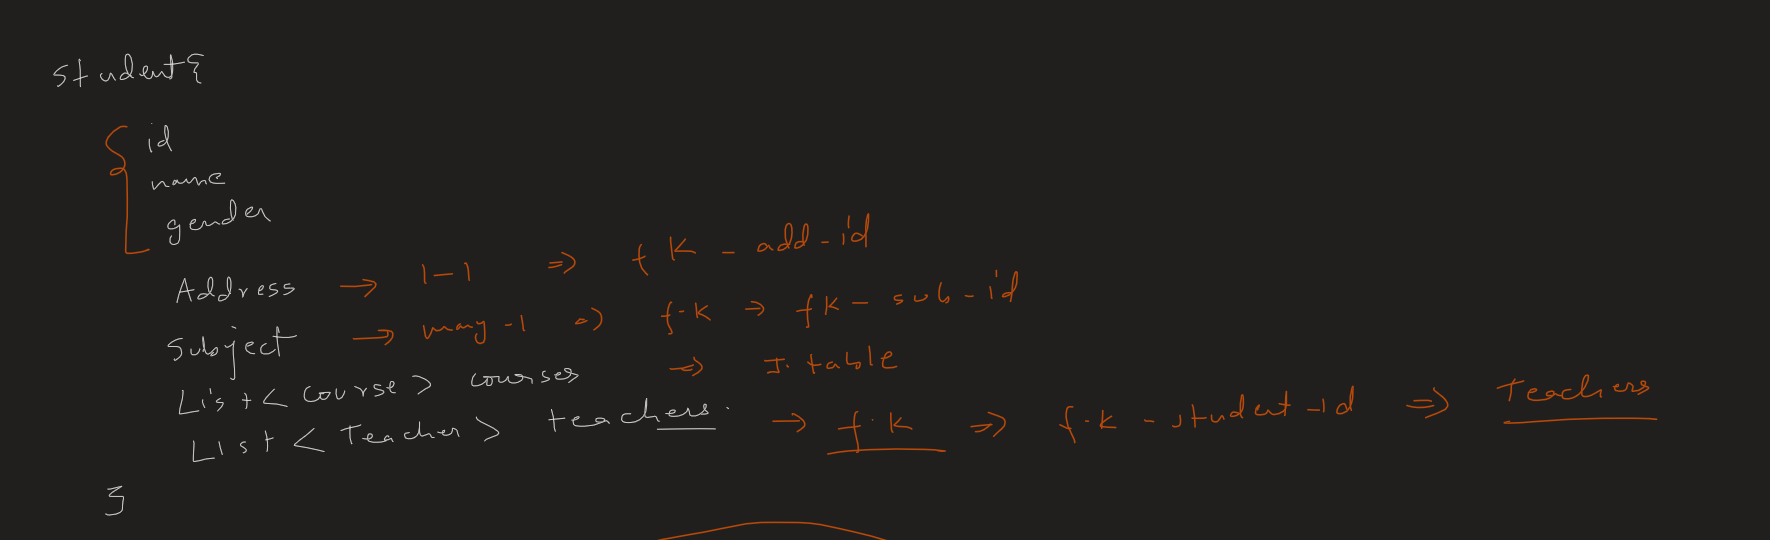 student{
id
name
gender
Address → 1-1 => fK - add-id
Subject → many-1 => f.K → fK - sub-id
List<Course> courses => J. table
List<Teacher> teachers. → f.K => f.K - student-id => Teachers
}